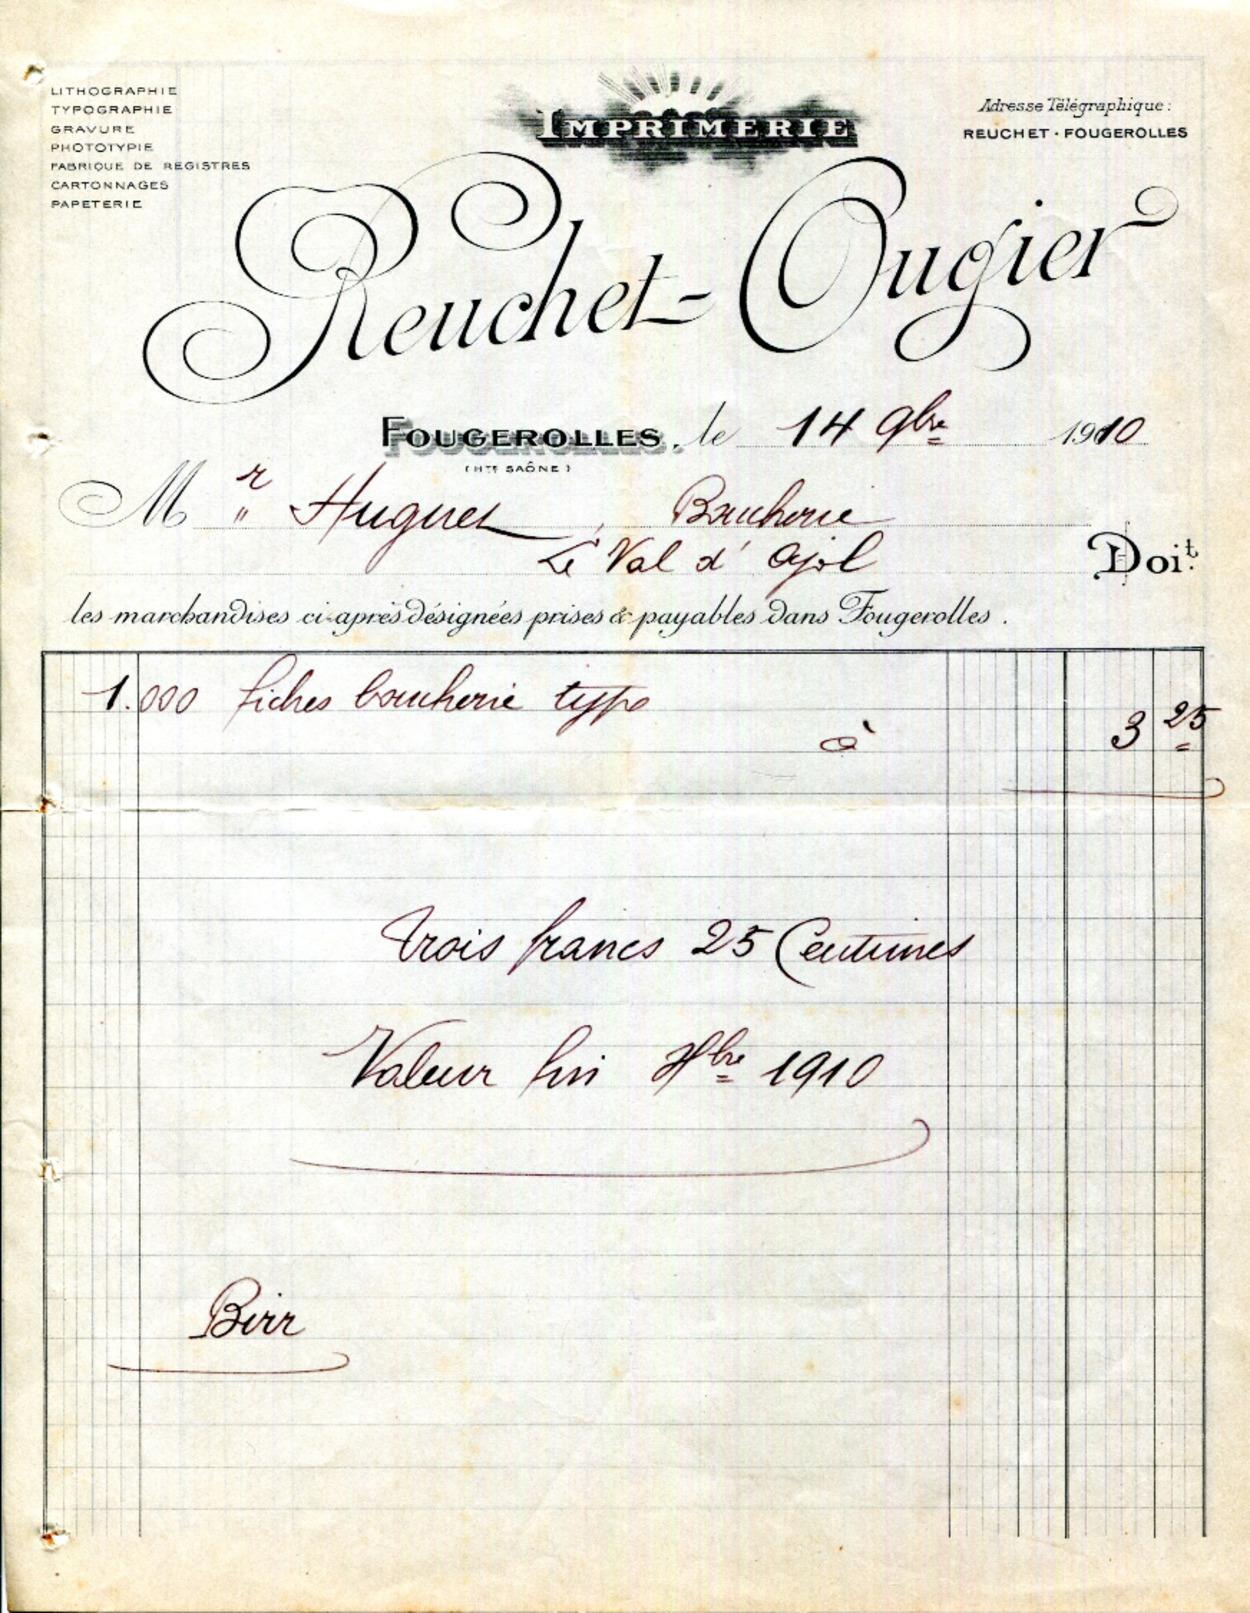 LITHOGRAPHIE
TYPOGRAPHIE
GRAVURE
PHOTOTYPIE
FABRIQUE DE REGISTRES
CARTONNAGES
PAPETERIE
IMPRIMERIE
Adresse Télégraphique :
REUCHET - FOUGEROLLES
Reuchet-Ougier
FOUGEROLLES, le 14 9bre 1910
(HTE SAÔNE)
Mr " Hugues, Boucherie
Le Val d'Ajol
Doit:
les marchandises ci-après désignées prises & payables dans Fougerolles.
1.000 fiches boucherie type
à 3 25
Trois francs 25 Centimes
Valeur fin 1910